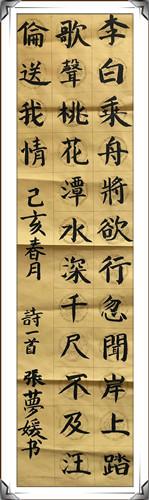 李白乘舟將欲行忽聞岸上踏
歌聲桃花潭水深千尺不及汪
倫送我情 己亥春月 詩一首 張夢媛书